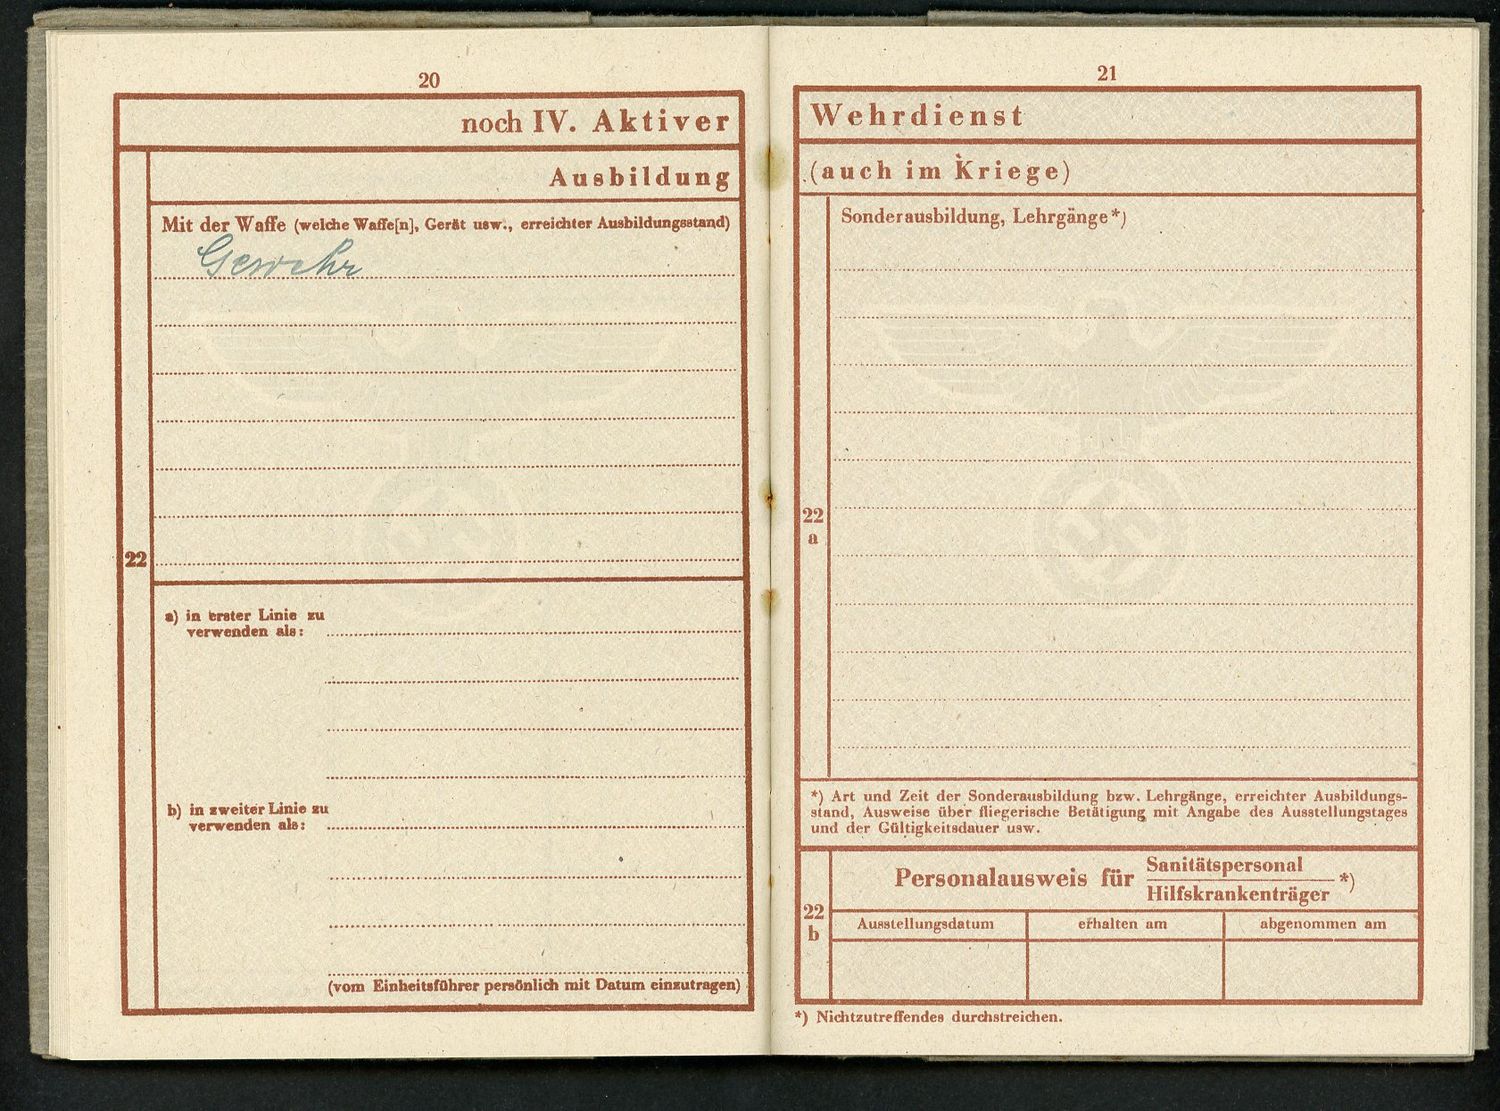 20
noch IV. Aktiver
Ausbildung
Mit der Waffe (welche Waffe[n], Gerät usw., erreichter Ausbildungsstand)
Gewehr
22
a) in erster Linie zu
verwenden als:
b) in zweiter Linie zu
verwenden als:
(vom Einheitsführer persönlich mit Datum einzutragen)
21
Wehrdienst
(auch im Kriege)
Sonderausbildung, Lehrgänge*)
22
a
*) Art und Zeit der Sonderausbildung bzw. Lehrgänge, erreichter Ausbildungs-
stand, Ausweise über fliegerische Betätigung mit Angabe des Ausstellungstages
und der Gültigkeitsdauer usw.
22
b
Personalausweis für Sanitätspersonal
Hilfskrankenträger *)
Ausstellungsdatum erhalten am abgenommen am
*) Nichtzutreffendes durchstreichen.